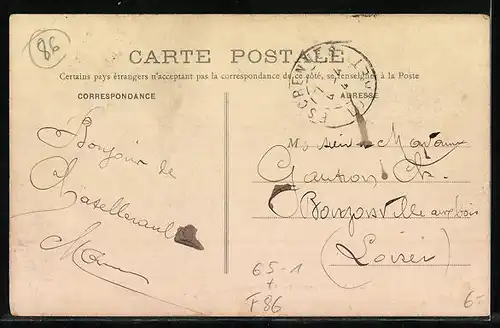 86
CARTE POSTALE
Certains pays étrangers n'acceptant pas la correspondance de ce côté, se renseigner à la Poste
CORRESPONDANCE
ADRESSE
ESCRENNES
LOIRET
Bonjour de
Chatellerault
M
Monsieur Madame
Gautron
(Loiret)
65-1
+
F86
6-